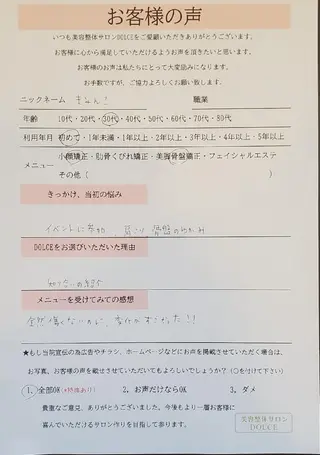 お客様の声
いつも美容整体サロンDOLCEをご愛顧いただきありがとうございます。
お客様に心から満足していただけるようお声を頂きたいと思います。
お客様のお声は私たちにとって大変励みになります。
お手数ですが、ご協力よろしくお願い致します。
ニックネーム 職業
年齢 10代・20代・30代・40代・50代・60代・70代・80代
利用年月 初めて・1年未満・1年以上・2年以上・3年以上・4年以上・5年以上
メニュー 小顔矯正・肋骨くびれ矯正・美腹骨盤矯正・フェイシャルエステ
その他( )
きっかけ、当初の悩み
イベントに参加 肩こり 骨盤のゆがみ
DOLCEをお選びいただいた理由
知り合いの紹介
メニューを受けてみての感想
全然痛くないのに、変化がすごかった!!
★もし当院宣伝の為広告やチラシ、ホームページなどにお声を掲載させていただく場合は、
お写真、お客様の声を載せさせていただいてもよろしいでしょうか?(○を付けて下さい)
1. 全部OK(*特典あり) 2. お声だけならOK 3. ダメ
貴重なご意見、ありがとうございました。今後もより一層お客様に
喜んでいただけるサロン作りを目指して参ります。
美容整体サロン
DOLCE